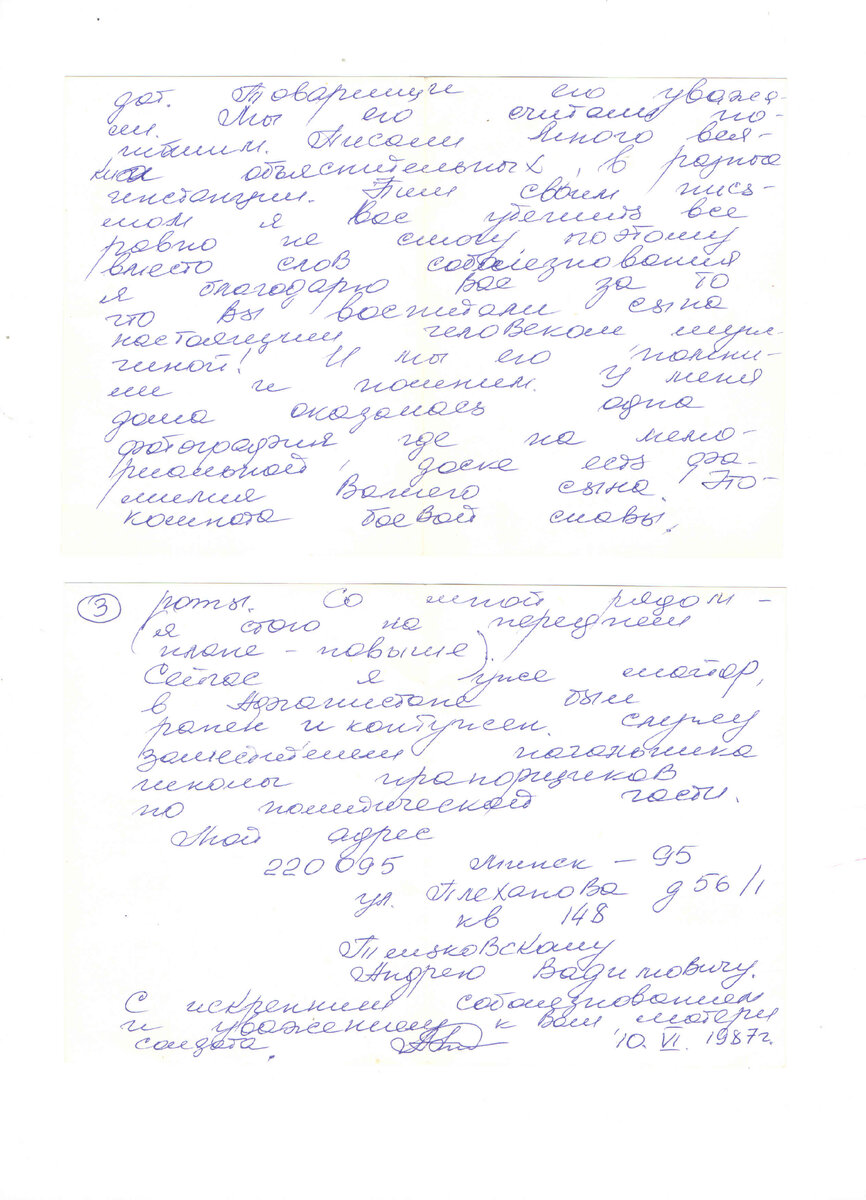 дат. Товарищи его уважа-
ли. Мы его считали по-
гибшим. Писали много вся-
ких объяснительных, в разные
инстанции. Этим своим пись-
мом я Вас убедить все
равно не смогу поэтому
вместо слов соболезнования
я благодарю Вас за то
что Вы воспитали сына
настоящим человеком муж-
чиной! И мы его помни-
ли и помним. У меня
дома оказалась одна
фотография где на мемо-
риальной доске есть фа-
милия Вашего сына. Это-
комната боевой славы
3 роты. Со мной рядом -
(я стою на переднем
плане - повыше).
Сейчас я уже майор,
в Афганистане был
ранен и контужен. Служу
заместителем начальника
школы прапорщиков
по политической части.
Мой адрес
220095 Минск - 95
ул. Плеханова д 56/1
кв 148
Андрею Вадимовичу.
С искренним соболезнованием
и уважением к Вам, матери
солдата. 10. VI. 1987г.